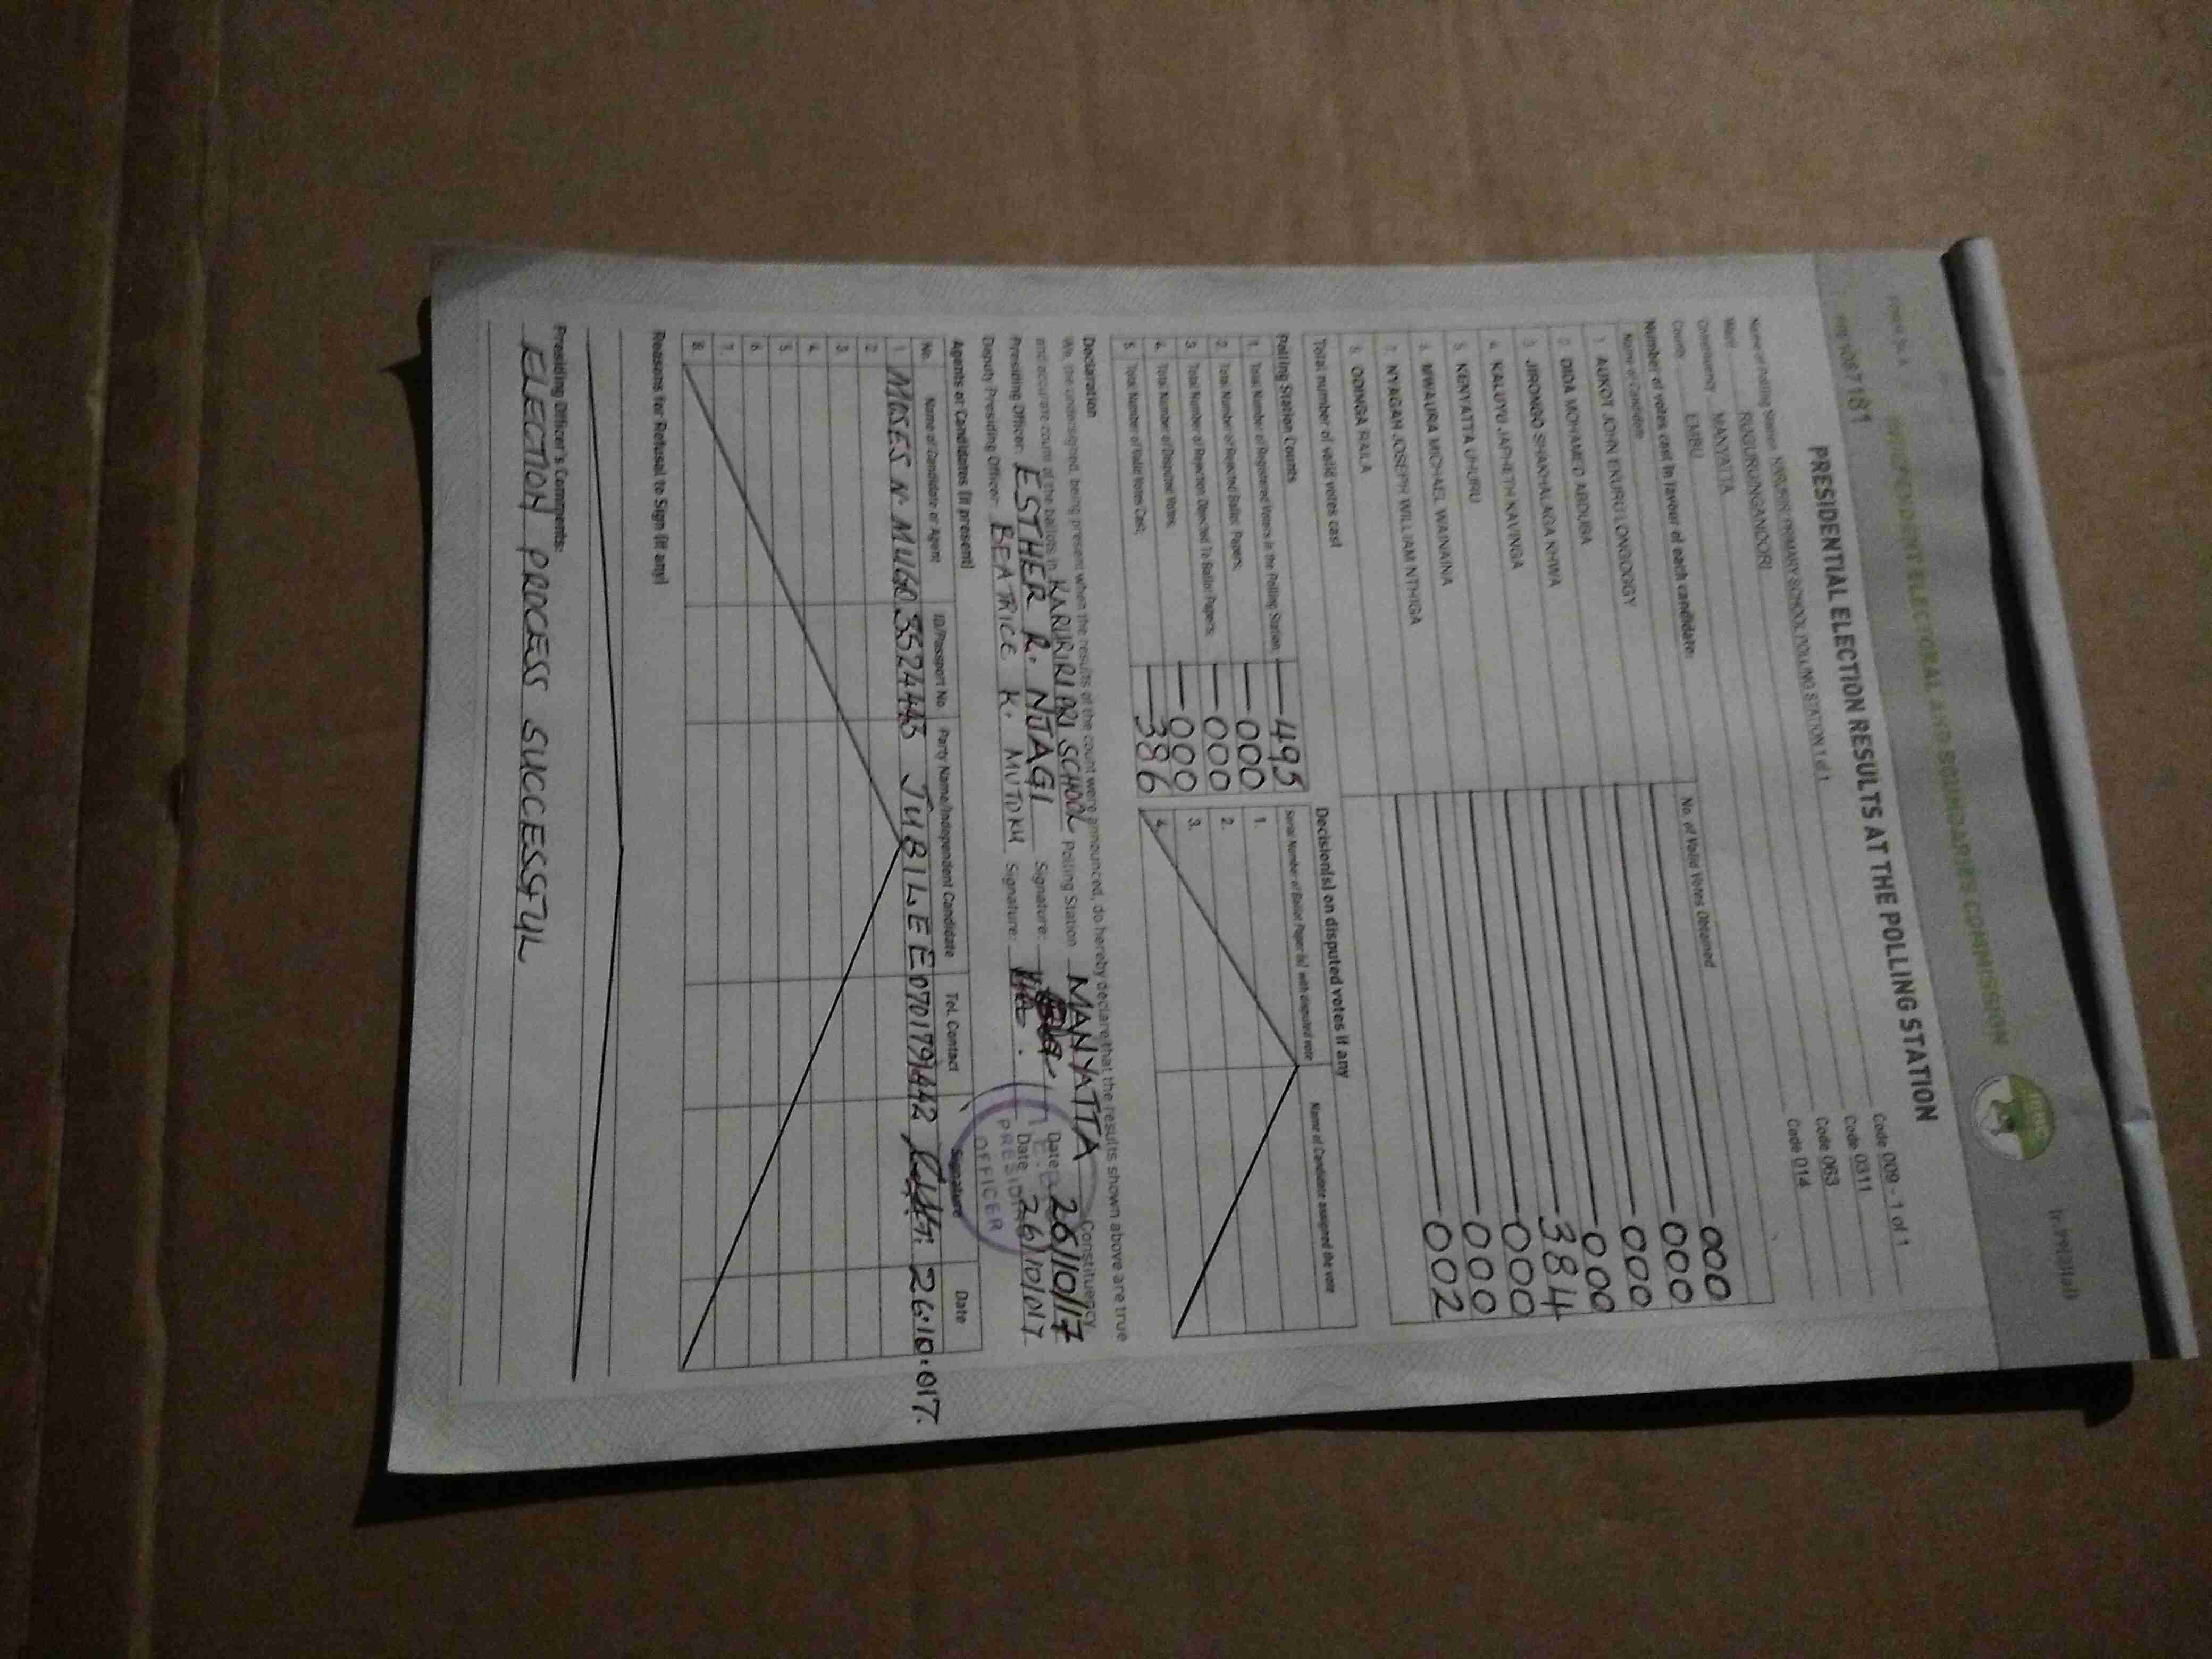 INDEPENDENT ELECTORAL AND BOUNDARIES COMMISSION
PRESIDENTIAL ELECTION RESULTS AT THE POLLING STATION
Name of Polling Station PRIMARY SCHOOL POLLING STATION 1 of 1 Code 009 - 1 of 1
Ward RUGURU/NGANDORI Code 0311
Constituency MANYATTA Code 063
County EMBU Code 014
Number of votes cast in favour of each candidate:
Name of Candidate No. of Valid Votes Obtained
1 AUKOT JOHN EKURU LONGOGGY 000
2 DIDA MOHAMED ABDUBA 000
3 JIRONGO SHAKHALAGA KHWA 000
4 KALUYU JAPHETH KAVINGA 000
5 KENYATTA UHURU 384
6 MWAURA MICHAEL WAINAINA 000
7 NYAGAH JOSEPH WILLIAM NTHIGA 000
8 ODINGA RAILA 002
Total number of valid votes cast
Polling Station Counts
1. Total Number of Registered Voters in the Polling Station 495
2. Total Number of Rejected Ballot Papers; 000
3. Total Number of Rejection Objected To Ballot Papers; 000
4. Total Number of Disputed Votes; 000
5. Total Number of Valid Votes Cast; 386
Decision(s) on disputed votes if any
Serial Number of Ballot Paper (s) with disputed vote Name of Candidate assigned the vote
1.
2.
3.
4.
Declaration
We, the undersigned, being present when the results of the count were announced, do hereby declare that the results shown above are true
and accurate count of the ballots in KARURIRI PRI SCHOOL Polling Station MANYATTA Constituency
Presiding Officer: ESTHER R. NJAGI Signature: Date 26/10/17
Deputy Presiding Officer: BEATRICE K. Signature: Date
PRESIDING
OFFICER
Agents or Candidates (if present)
No. Name of Candidate or Agent ID/Passport No Party Name/Independent Candidate Tel. Contact Signature Date
1. MOSES N. MUGO 3524443 JUBILEE 0701791442 26.10.017.
2.
3.
4.
5.
6.
7.
8.
Reasons for Refusal to Sign (if any)
Presiding Officer's Comments:
ELECTION PROCESS SUCCESSFUL